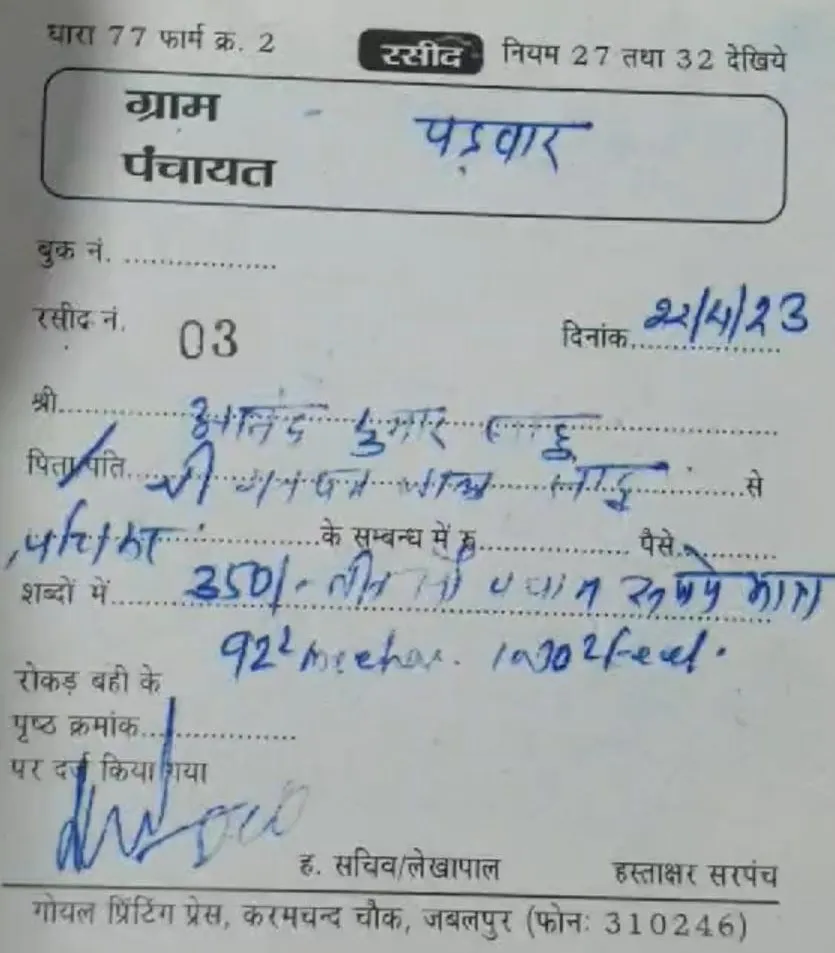 धारा 77 फार्म क्र. 2 रसीद नियम 27 तथा 32 देखिये
ग्राम पंचायत पड़वार
बुक नं. ....................
रसीद नं. 03 दिनांक 22/4/23
श्री आनंद कुमार साहू
पिता/पति श्री लाल साहू से
के सम्बन्ध में रु. पैसे
शब्दों में 350/- तीन सौ पचास रूपये मात्र
92²
रोकड़ बही के
पृष्ठ क्रमांक
पर दर्ज किया गया
ह. सचिव/लेखापाल हस्ताक्षर सरपंच
गोयल प्रिंटिंग प्रेस, करमचन्द चौक, जबलपुर (फोन: 310246)